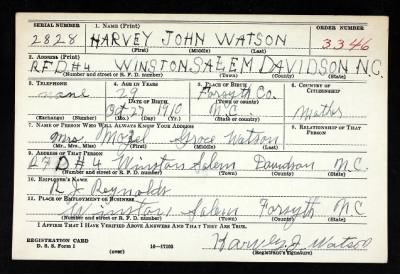 SERIAL NUMBER 1. NAME (Print) ORDER NUMBER
2828 HARVEY JOHN WATSON 3346
(First) (Middle) (Last)
2. ADDRESS (Print)
R F D #4 WINSTON SALEM DAVIDSON N.C.
(Number and street or R. F. D. number) (Town) (County) (State)
3. TELEPHONE 4. AGE IN YEARS 5. PLACE OF BIRTH 6. COUNTRY OF CITIZENSHIP
none 29 Forsyth Co.
DATE OF BIRTH (Town or county)
Oct 27 1910 N.C.
(Mo.) (Day) (Yr.) (State or country)
7. NAME OF PERSON WHO WILL ALWAYS KNOW YOUR ADDRESS 8. RELATIONSHIP OF THAT PERSON
Mrs. Grace Watson
(Mr., Mrs., Miss) (First) (Middle) (Last)
9. ADDRESS OF THAT PERSON
R F D #4 Winston Salem Davidson N.C.
(Number and street or R. F. D. number) (Town) (County) (State)
10. EMPLOYER'S NAME
R. J. Reynolds
11. PLACE OF EMPLOYMENT OR BUSINESS
Winston Salem Forsyth N C
(Number and street or R. F. D. number) (Town) (County) (State)
I AFFIRM THAT I HAVE VERIFIED ABOVE ANSWERS AND THAT THEY ARE TRUE.
REGISTRATION CARD
D. S. S. Form 1 (over) 16—17105 Harvey J Watson
(Registrant's signature)